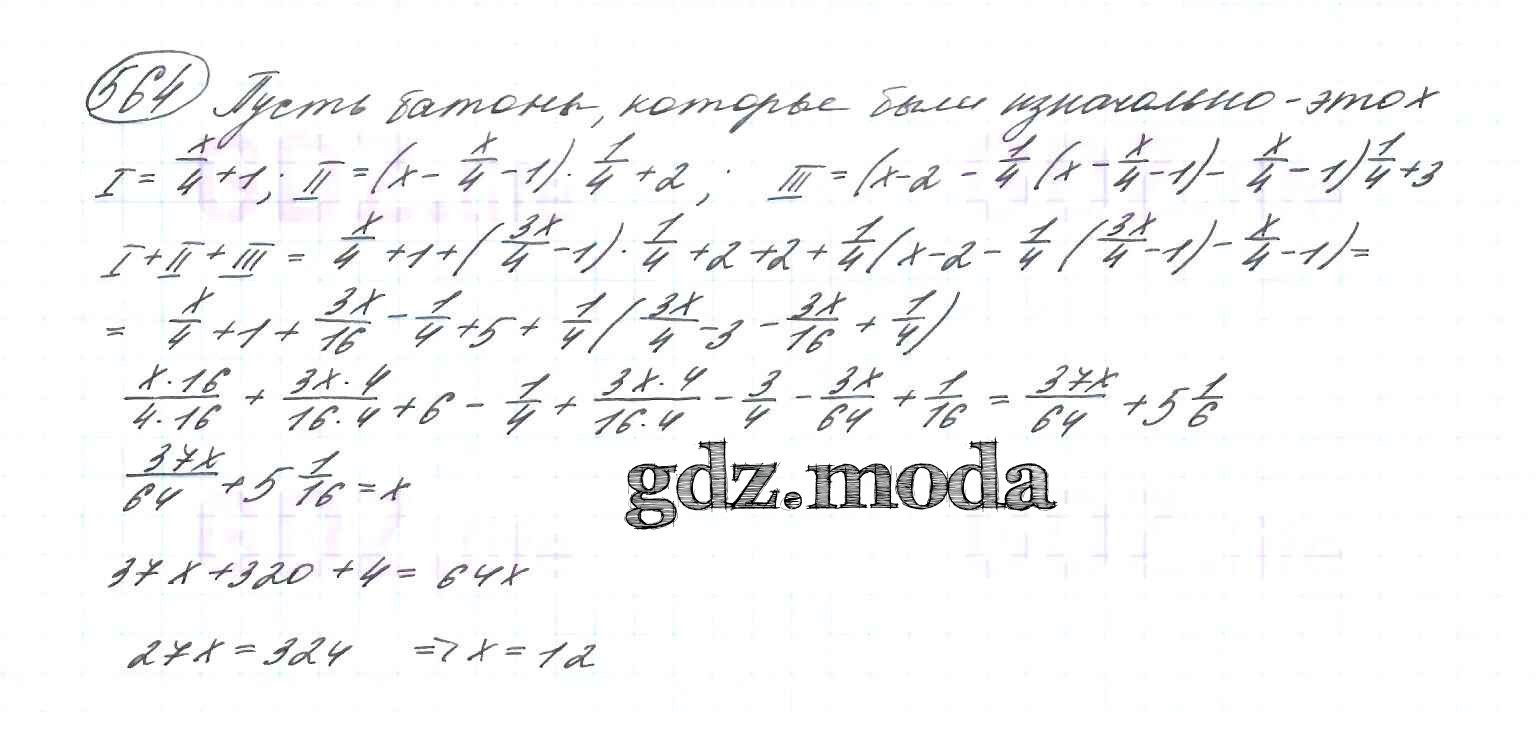 564 Пусть батоны, которые были изначально - это x
I = x/4 + 1; II = (x - x/4 - 1) · 1/4 + 2; III = (x - 2 - 1/4 (x - x/4 - 1) - x/4 - 1) 1/4 + 3
I + II + III = x/4 + 1 + (3x/4 - 1) · 1/4 + 2 + 2 + 1/4 (x - 2 - 1/4 (3x/4 - 1) - x/4 - 1) =
= x/4 + 1 + 3x/16 - 1/4 + 5 + 1/4 (3x/4 - 3 - 3x/16 + 1/4)
x·16/4·16 + 3x·4/16·4 + 6 - 1/4 + 3x·4/16·4 - 3/4 - 3x/64 + 1/16 = 37x/64 + 5 1/6
37x/64 + 5 1/16 = x
gdz.moda
37x + 320 + 4 = 64x
27x = 324 => x = 12